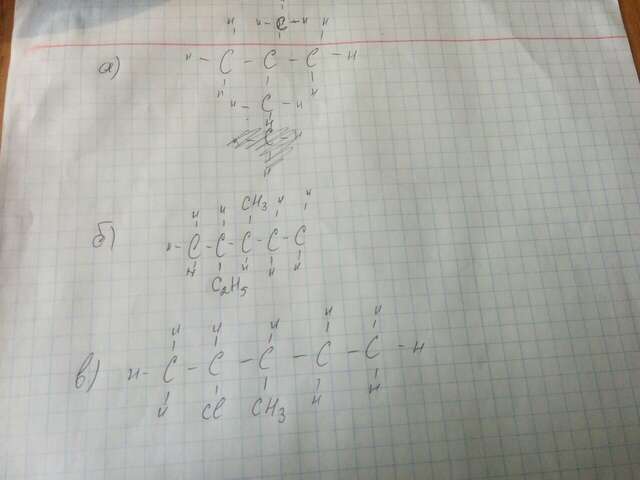 H H - C - H H
а) H - C - C - C - H
H H - C - H H
H
CH3
H H H H
б) H - C - C - C - C - C
H H H H
C2H5
H H H H H
в) H - C - C - C - C - C - H
H Cl CH3 H H